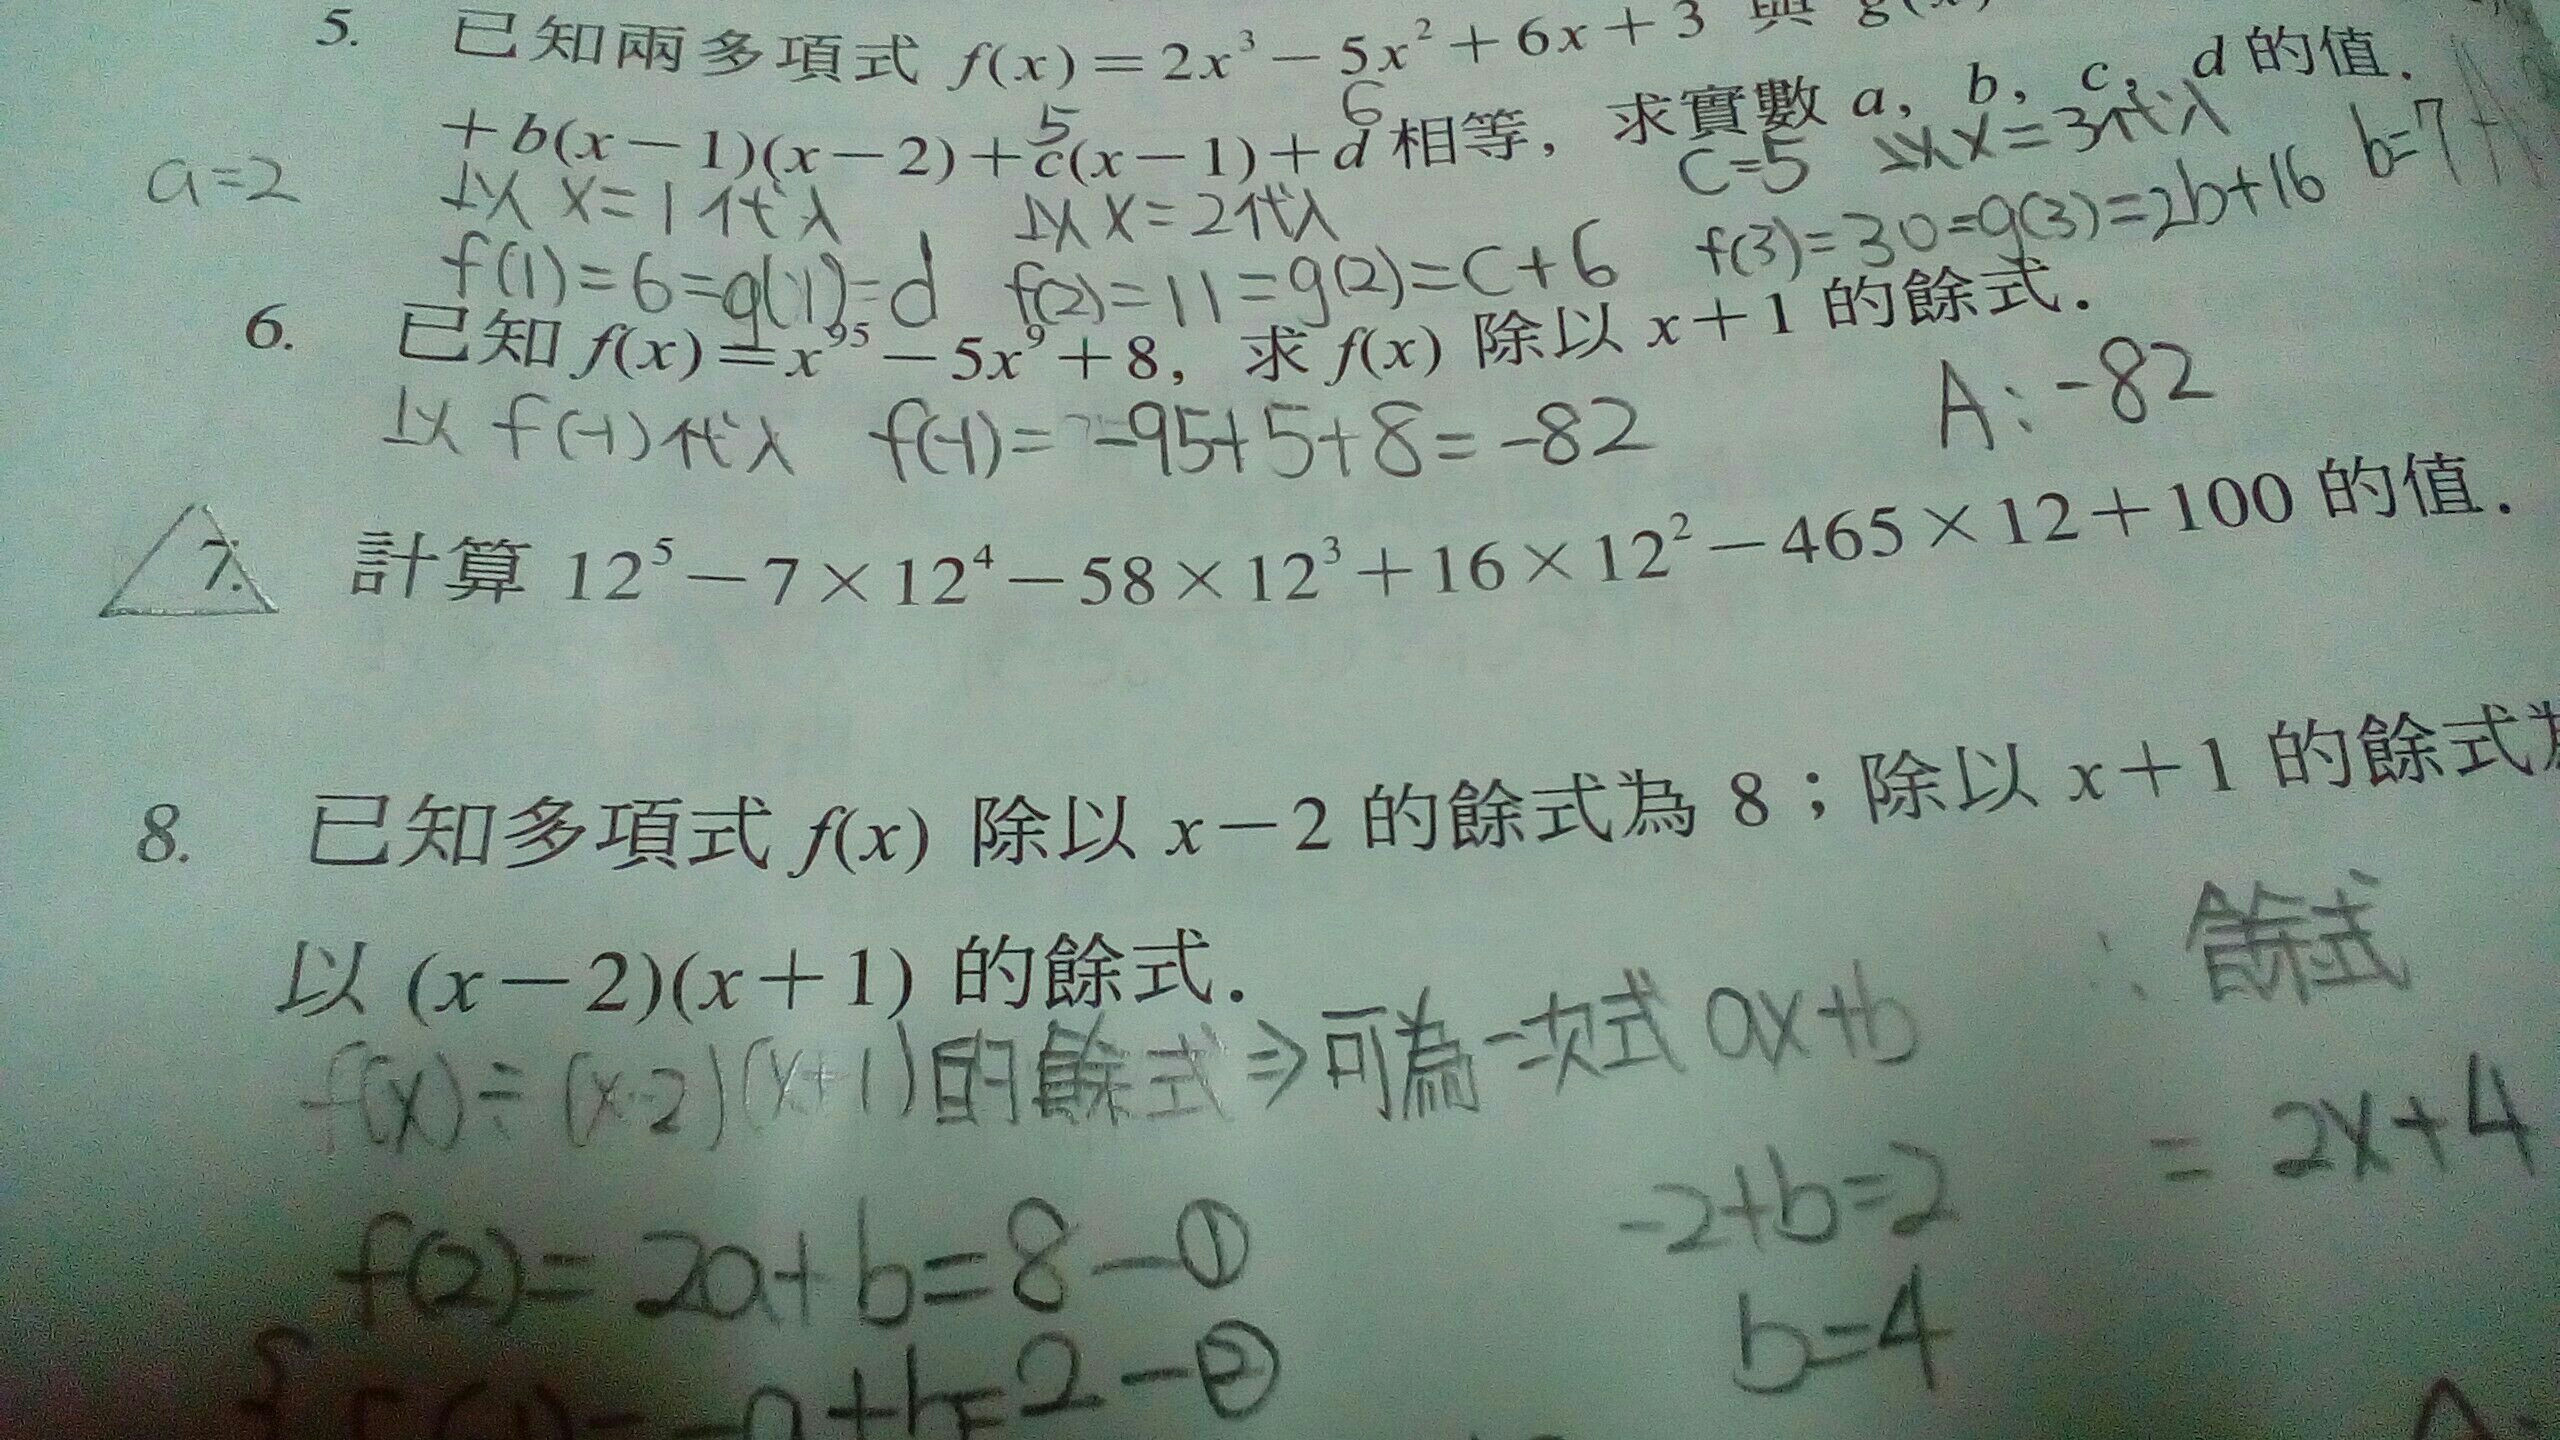 5. 已知兩多項式 f(x)=2x³-5x²+6x+3 與 g(x)
+b(x-1)(x-2)+c(x-1)+d 相等，求實數 a，b，c，d 的值.
5 6
a=2 以 x=1 代入 以 x=2 代入 c=5 以 x=3 代入 b=7
f(1)=6=g(1)=d f(2)=11=g(2)=c+6 f(3)=30=g(3)=2b+16
6. 已知 f(x)=x⁹⁵-5x⁹+8，求 f(x) 除以 x+1 的餘式.
以 f(-1) 代入 f(-1)= -95+5+8=-82 A:-82
7. 計算 12⁵-7×12⁴-58×12³+16×12²-465×12+100 的值.
8. 已知多項式 f(x) 除以 x-2 的餘式為 8；除以 x+1 的餘式為
以 (x-2)(x+1) 的餘式.
f(x)÷(x-2)(x+1)的餘式⇒可為一次式 ax+b ∴餘式
=2x+4
f(2)=2a+b=8-① -2+b=2
-a+b=2-② b=4